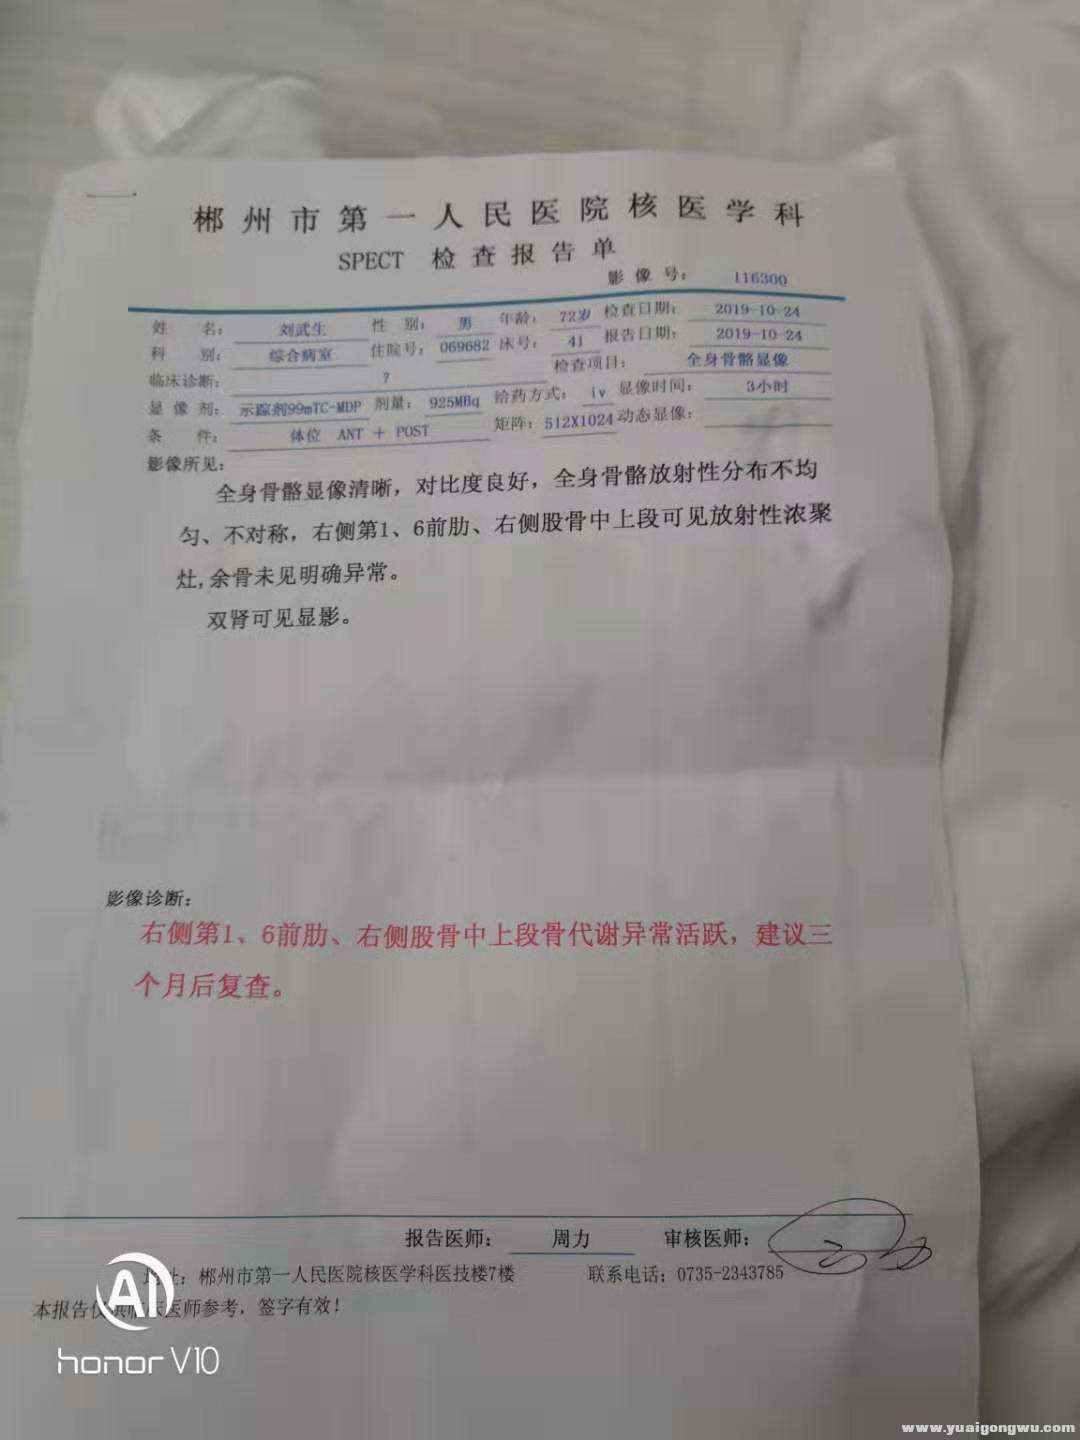 郴州市第一人民医院核医学科
SPECT 检查报告单
影像号： 116300
姓名： 刘武生 性别： 男 年龄： 72岁 检查日期： 2019-10-24
科别： 综合病室 住院号： 069682 床号： 41 报告日期： 2019-10-24
临床诊断： ? 检查项目： 全身骨骼显像
显像剂： 示踪剂99mTC-MDP 剂量： 925MBq 给药方式： iv 显像时间： 3小时
条件： 体位 ANT + POST 矩阵： 512X1024 动态显像：
影像所见：
全身骨骼显像清晰，对比度良好，全身骨骼放射性分布不均
匀、不对称，右侧第1、6前肋、右侧股骨中上段可见放射性浓聚
灶,余骨未见明确异常。
双肾可见显影。
影像诊断：
右侧第1、6前肋、右侧股骨中上段骨代谢异常活跃，建议三
个月后复查。
报告医师： 周力 审核医师：
址：郴州市第一人民医院核医学科医技楼7楼 联系电话：0735-2343785
本报告仅供临床医师参考，签字有效！
AI
honor V10
www.yuaigongwu.com